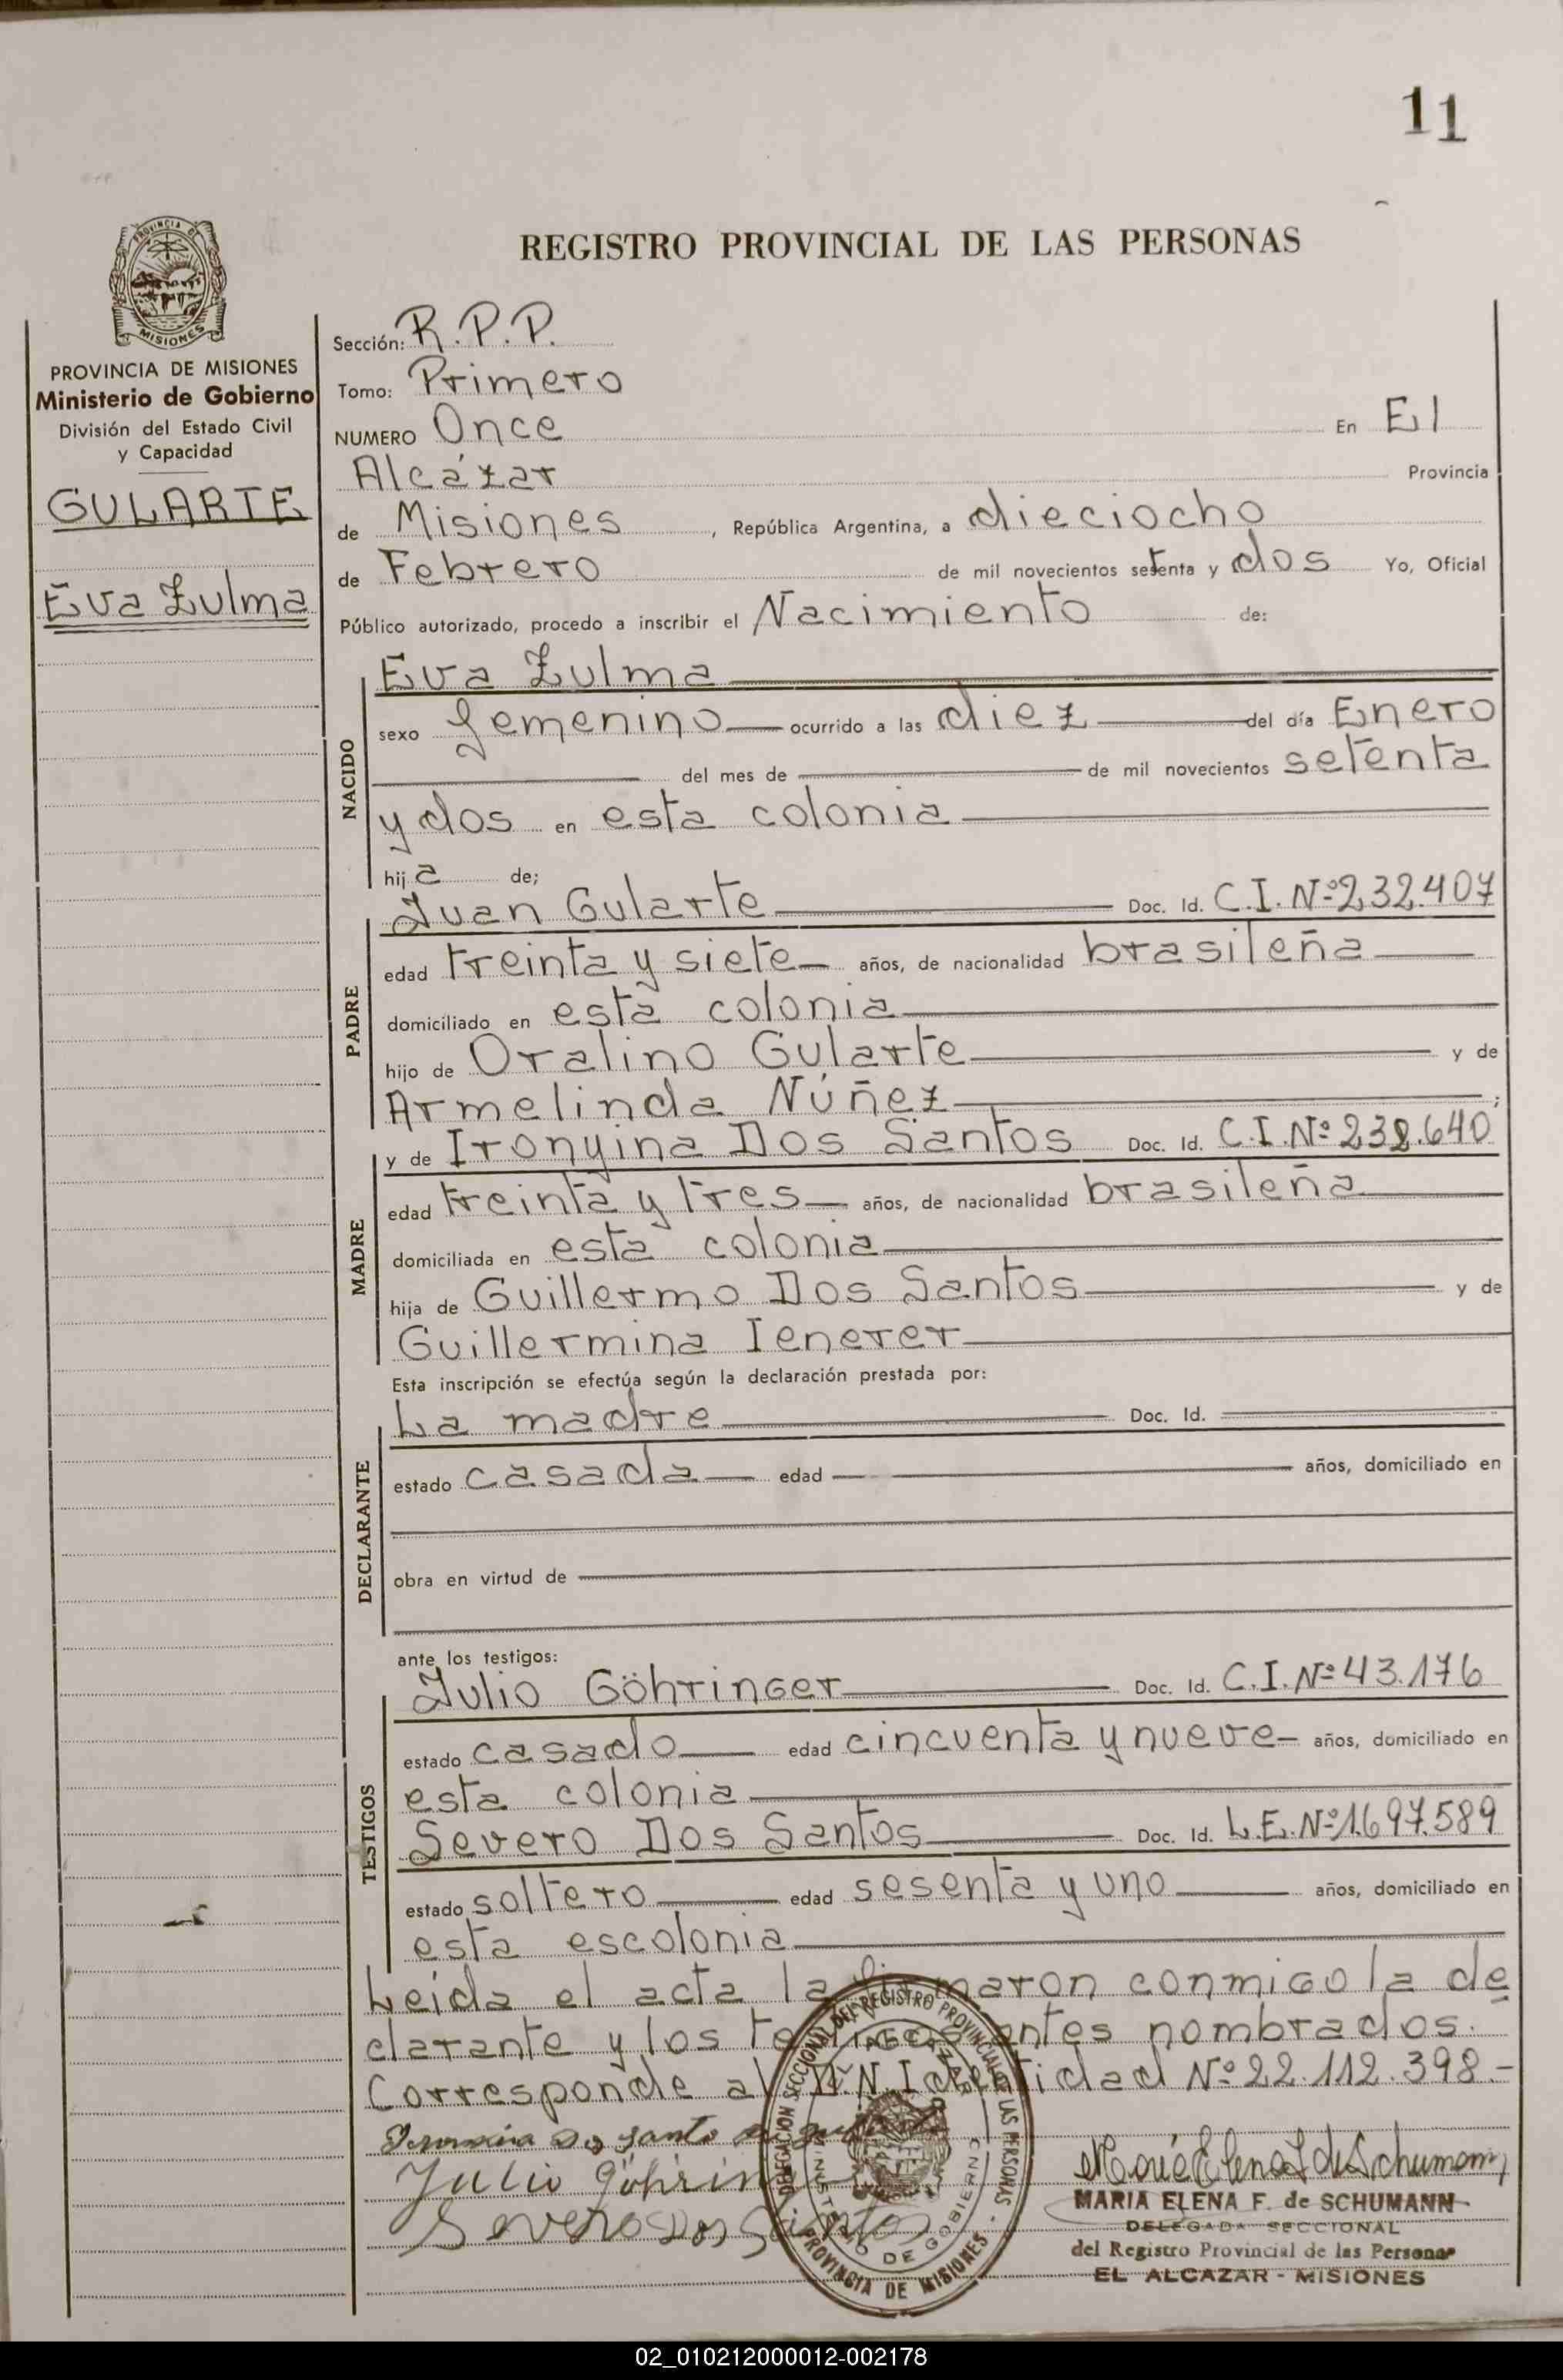 11
REGISTRO PROVINCIAL DE LAS PERSONAS
PROVINCIA DE
MISIONES
PROVINCIA DE MISIONES
Ministerio de Gobierno
División del Estado Civil
y Capacidad
GULARTE
Eva Zulma
Sección: R.P.P.
Tomo: Primero
NUMERO Once En El
Alcázar Provincia
de Misiones, República Argentina, a dieciocho
de Febrero de mil novecientos setenta y dos Yo, Oficial
Público autorizado, procedo a inscribir el Nacimiento de:
NACIDO
Eva Zulma
sexo femenino ocurrido a las diez del día Enero
del mes de de mil novecientos setenta
y dos en esta colonia
hija de;
PADRE
Juan Gularte Doc. Id. C.I. Nº 232.407
edad treinta y siete años, de nacionalidad brasileña
domiciliado en esta colonia
hijo de Oralino Gularte y de
Armelinda Núñez;
MADRE
y de Ironyina Dos Santos Doc. Id. C.I. Nº 238.640
edad treinta y tres años, de nacionalidad brasileña
domiciliada en esta colonia
hija de Guillermo Dos Santos y de
Guillermina Ienerer
Esta inscripción se efectúa según la declaración prestada por:
DECLARANTE
La madre Doc. Id.
estado casada edad años, domiciliado en
obra en virtud de
ante los testigos:
TESTIGOS
Julio Göhringer Doc. Id. C.I. Nº 43.176
estado casado edad cincuenta y nueve años, domiciliado en
esta colonia
Severo Dos Santos Doc. Id. L.E. Nº 1.697.589
estado soltero edad sesenta y uno años, domiciliado en
esta escolonia
Leída el acta la firmaron conmigo la de
clarante y los testigos antes nombrados.
Corresponde al D.N.Identidad Nº 22.112.398.-
dos santo
Julio Göhringer
Severo Dos Santos
DELEGACION SECCIONAL DEL REGISTRO PROVINCIAL DE LAS PERSONAS
EL ALCAZAR
MINISTERIO DE GOBIERNO
PROVINCIA DE MISIONES
María Elena F de Schumann
MARIA ELENA F. de SCHUMANN
DELEGADA SECCIONAL
del Registro Provincial de las Personas
EL ALCAZAR - MISIONES
02_010212000012-002178